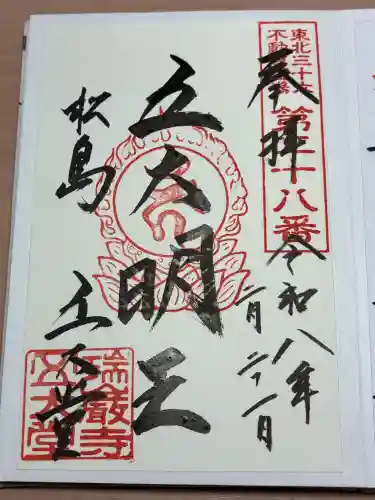 東北三十六
不動尊霊場
第二十八番
奉拝
令和八年
二月二十一日
五大明王
松島
五大堂
瑞巌寺
五大堂